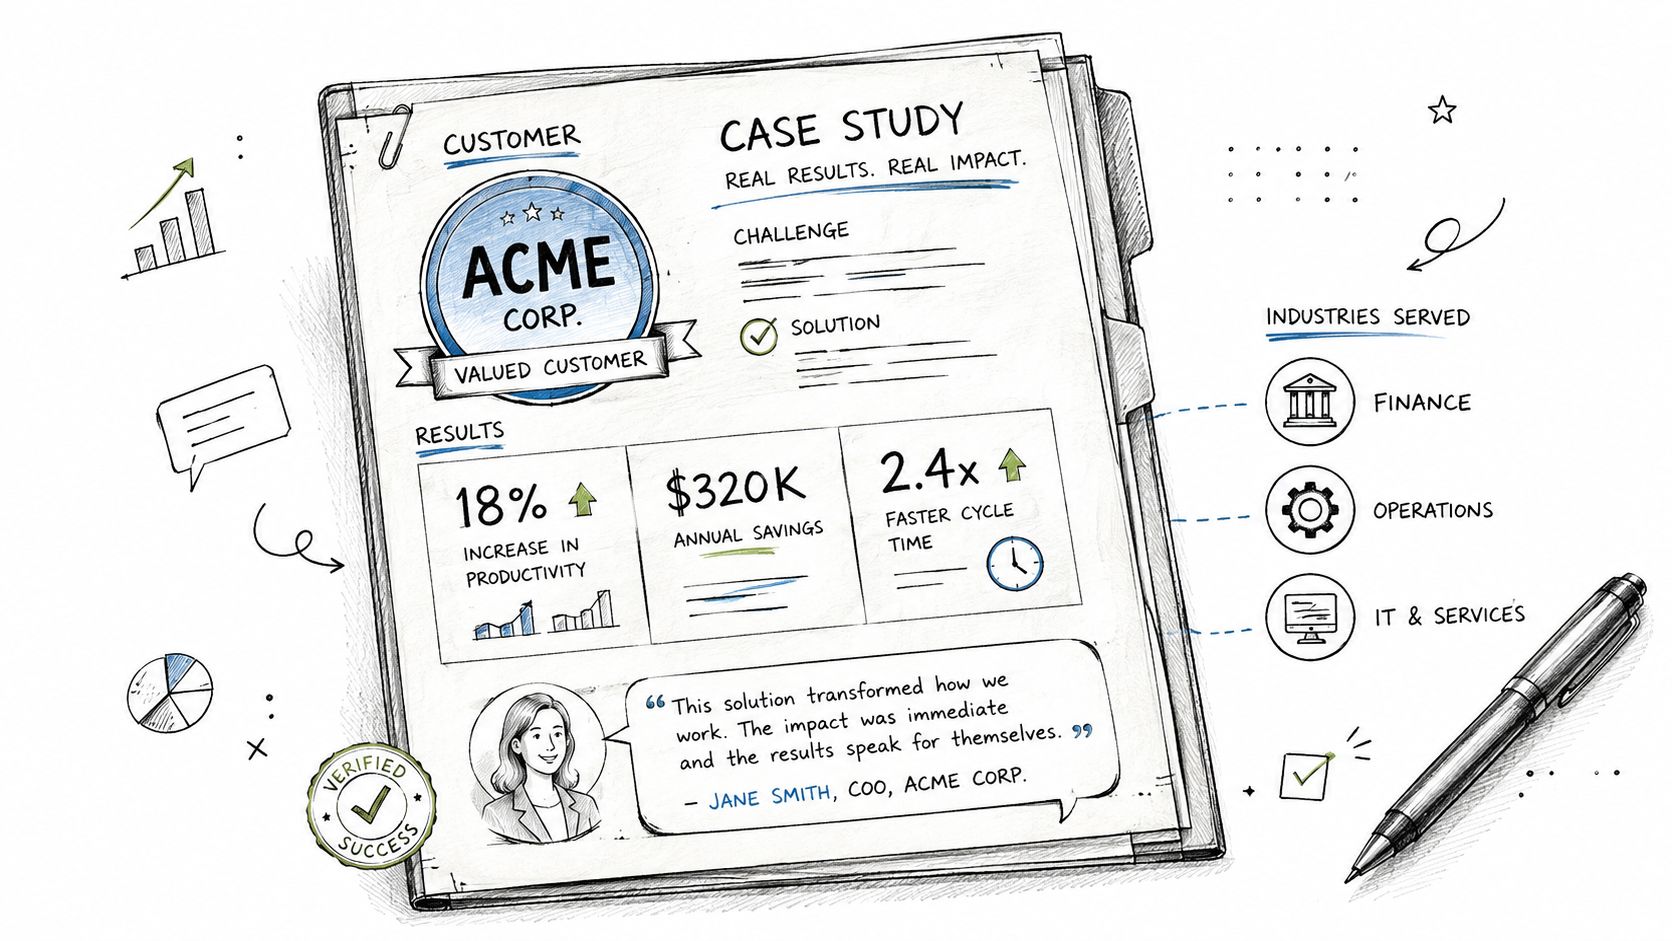 CUSTOMER
ACME
CORP.
VALUED CUSTOMER
CASE STUDY
REAL RESULTS. REAL IMPACT.
CHALLENGE
SOLUTION
RESULTS
18%
INCREASE IN
PRODUCTIVITY
$320K
ANNUAL SAVINGS
2.4x
FASTER CYCLE
TIME
“This solution transformed how we
work. The impact was immediate
and the results speak for themselves.”
– JANE SMITH, COO, ACME CORP.
VERIFIED
SUCCESS
INDUSTRIES SERVED
FINANCE
OPERATIONS
IT & SERVICES